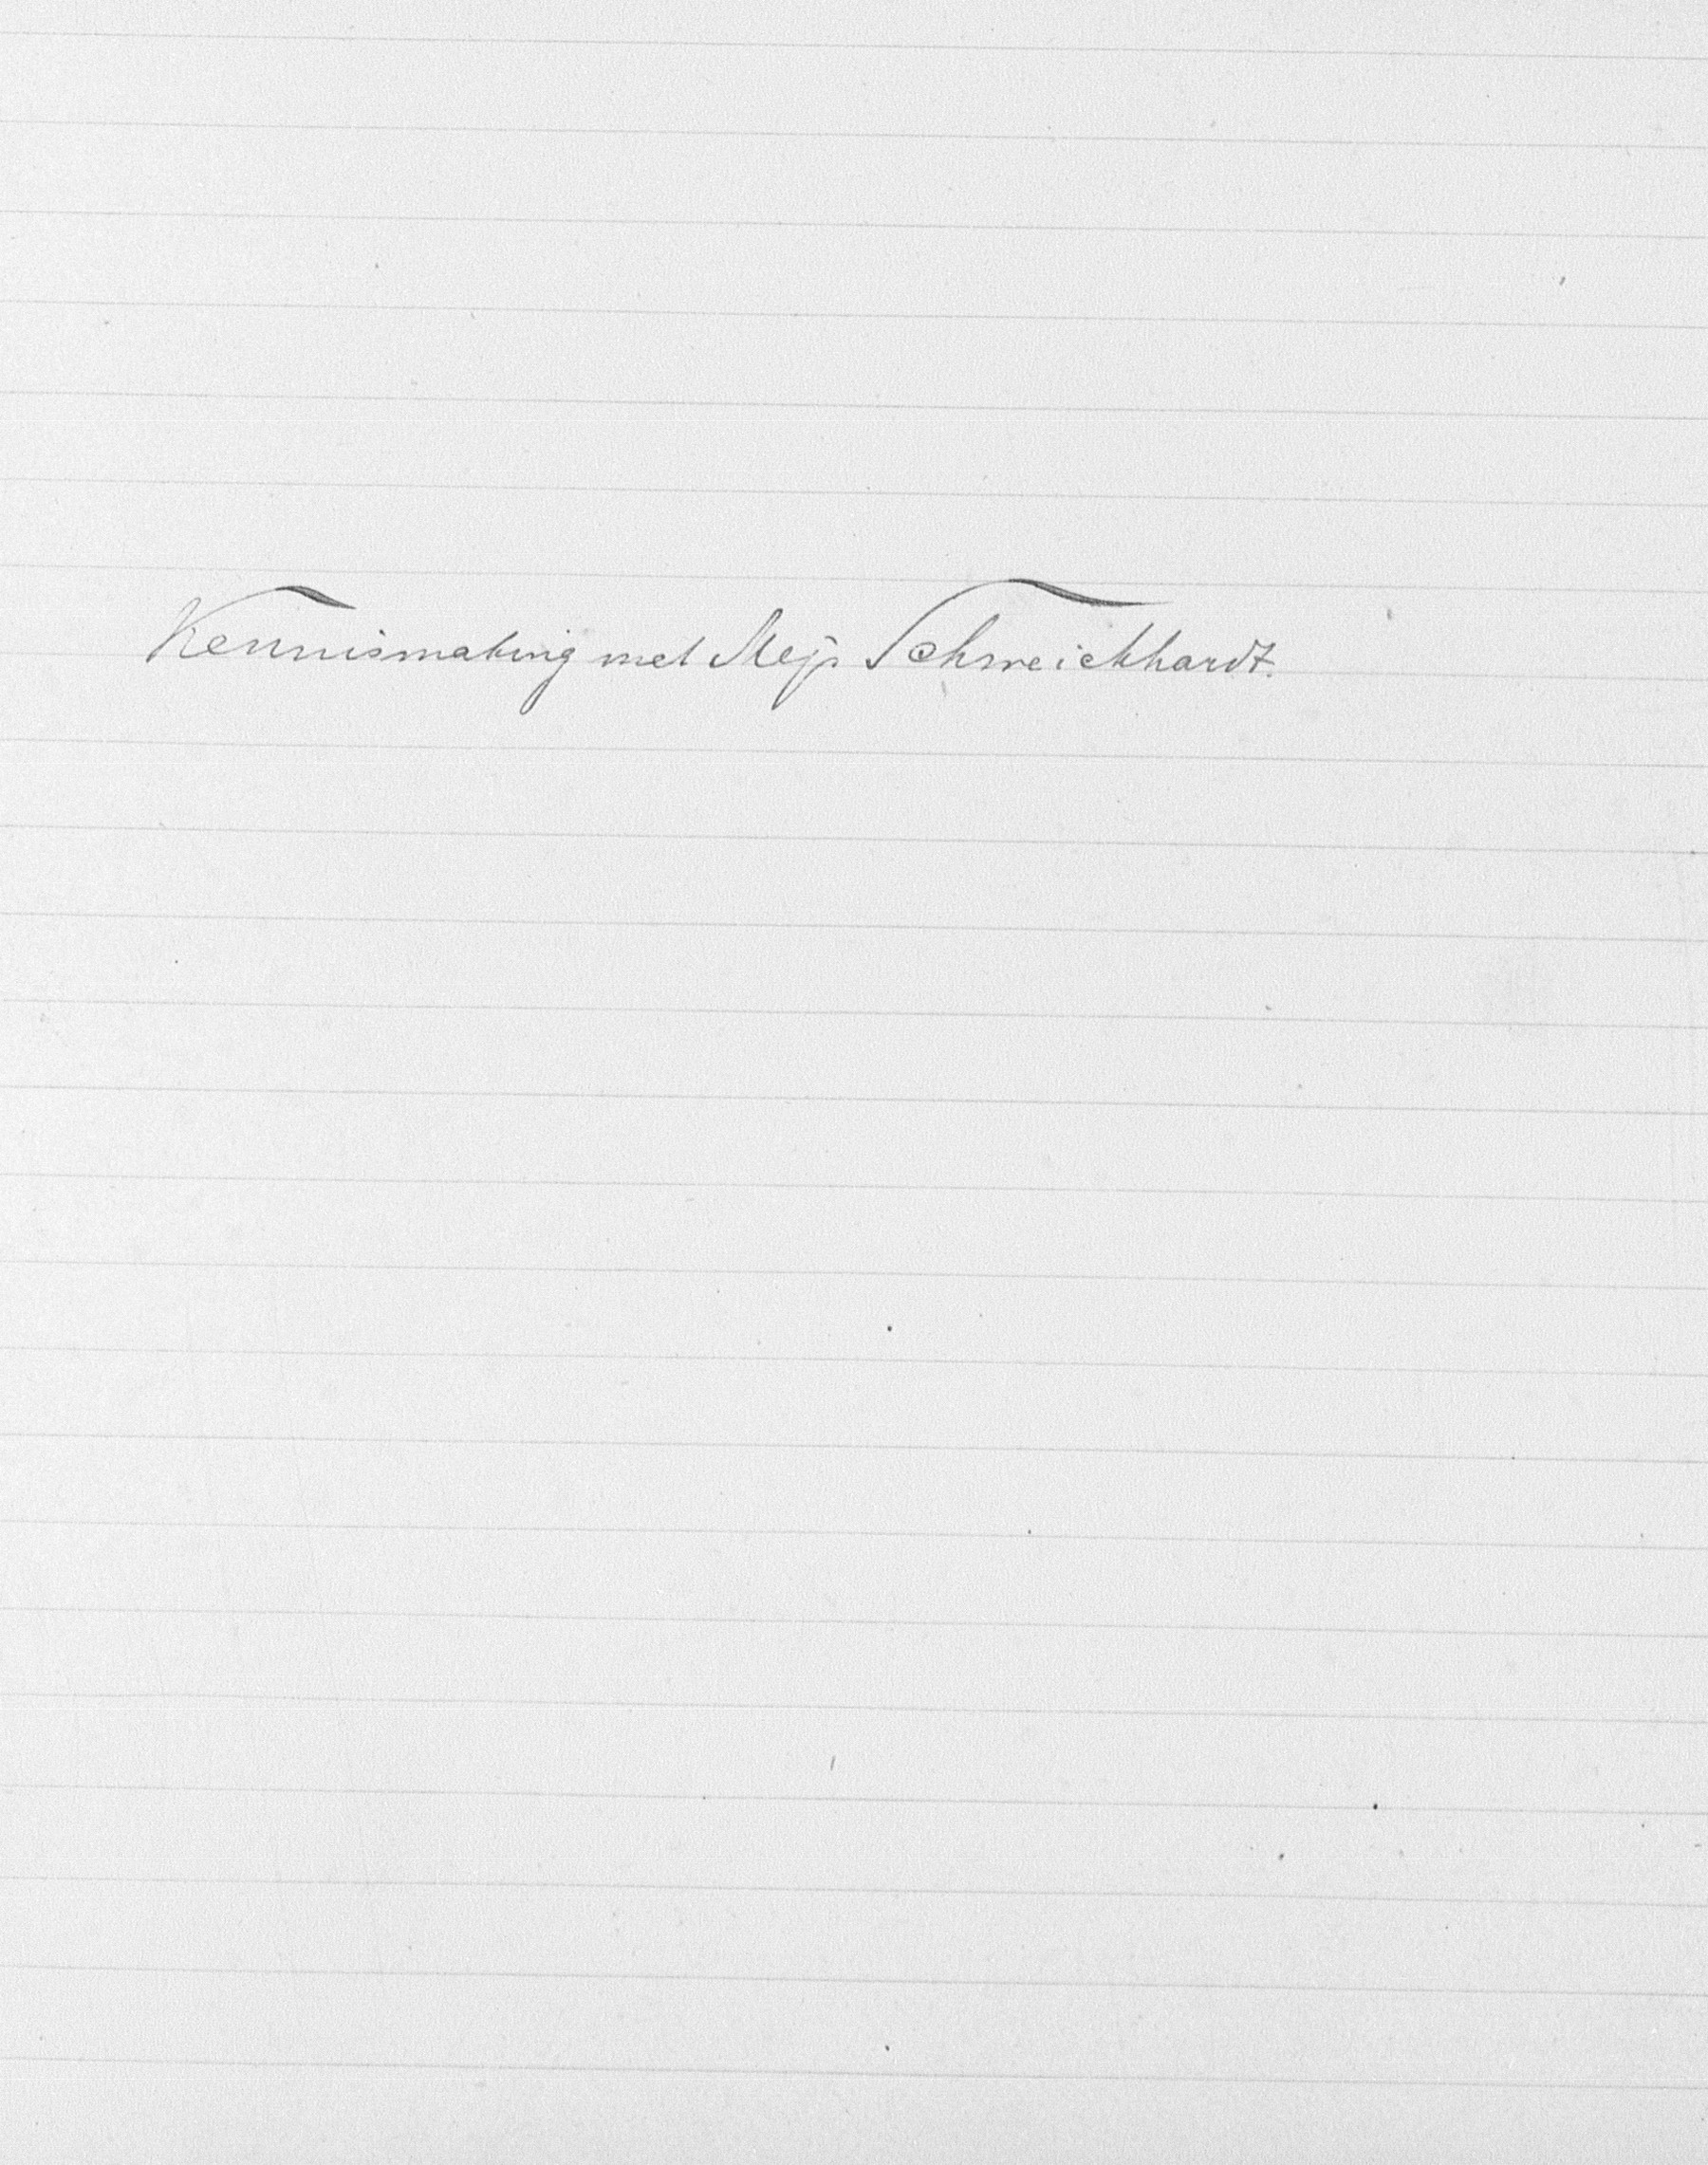 Kennismaking met Mejr Schweickhardt.